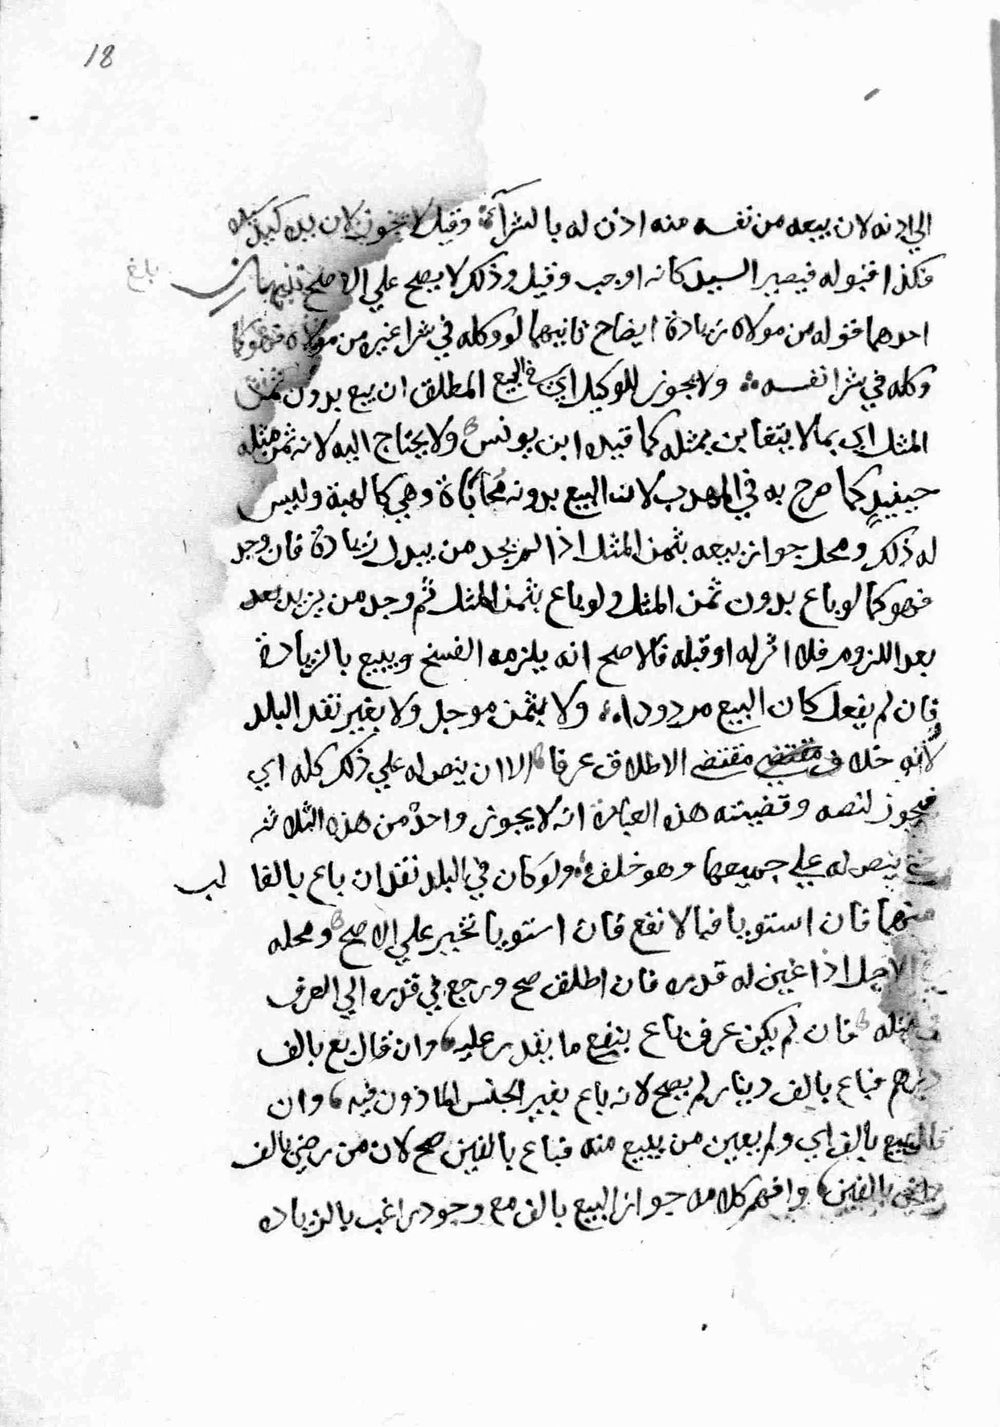 18
الي اذنه لان بيعه من نفسه منه اذن له بالشرآء وقيل لا يجوز لان يد كيد سيده
فكذا قبوله فيصير السيد كانه اوجب وقبل وذلك لا يصح علي الاصح تنبيهان
بلغ
احدهما قوله من مولاه زيادة ايضاح ثانيهما لو وكله في شرا غيره من مولاه فهو كما
وكله في شرا نفسه ولا يجوز للوكيل اي في البيع المطلق ان يبيع بدون ثمن
المثل اي بما لا يتغابن بمثله كما قيده ابن يونس ولا يحتاج اليه لانه ثمن مثله
حينيذٍ كما صرح به في المهذب لان البيع بدونه مُحَابَاة وهي كالهبة وليس
له ذلك ومحل جواز بيعه بثمن المثل اذا لم يجد من يبذل زيادة فان وجد
فهو كما لو باع بدون ثمن المثل ولو باع بثمن المثل ثم وجد من يزيد بعد
بعد اللزوم فلا اثر له او قبله فالاصح انه يلزمه الفسخ ويبيع بالزيادة
فان لم يفعل كان البيع مردودا ولا بثمن موجل ولا بغير نقد البلد
لانه خلاف مقتضي مقتضي الاطلاق عرفا الا ان ينص له علي ذلك كله اي
فيجوز لنصه وقضيته هذه العبارة انه لا يجوز واحد من هذه الثلاثة
ينص له علي جميعها وهو خلف ولو كان في البلد نقدان باع بالغالب
منهما فان استويا فبالانفع فان استويا تخير علي الاصح ومحله
الاجل اذا عين له قدره فان اطلق صح ورجع في قدره الي العرف
مثله فان لم يكن عرف باع بنفع ما يقدر عليه وان قال بع بالف
درهم فباع بالف دينار لم يصح لانه باع بغير الجنس الماذون فيه وان
قال بع بالف اي ولم يعين من يبيع منه فباع بالفين صح لان من رضي بالف
رضي بالفين وافهم كلامه جواز البيع بالف مع وجود راغب بالزياده